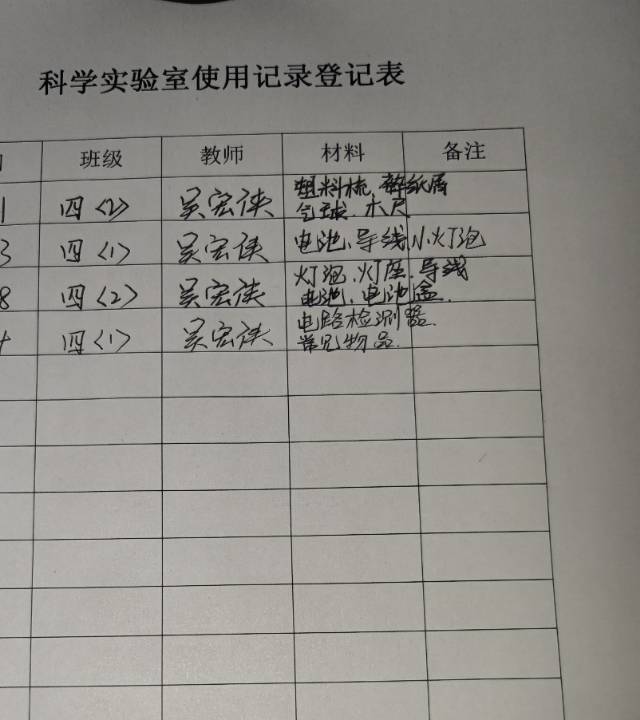 科学实验室使用记录登记表
班级 教师 材料 备注
1 四〈2〉 吴宏侠 塑料梳、碎纸屑
气球、木尺
3 四〈1〉 吴宏侠 电池、导线、小灯泡
8 四〈2〉 吴宏侠 灯泡、灯座、导线
电池、电池盒.
4 四〈1〉 吴宏侠 电路检测器.
常见物品.